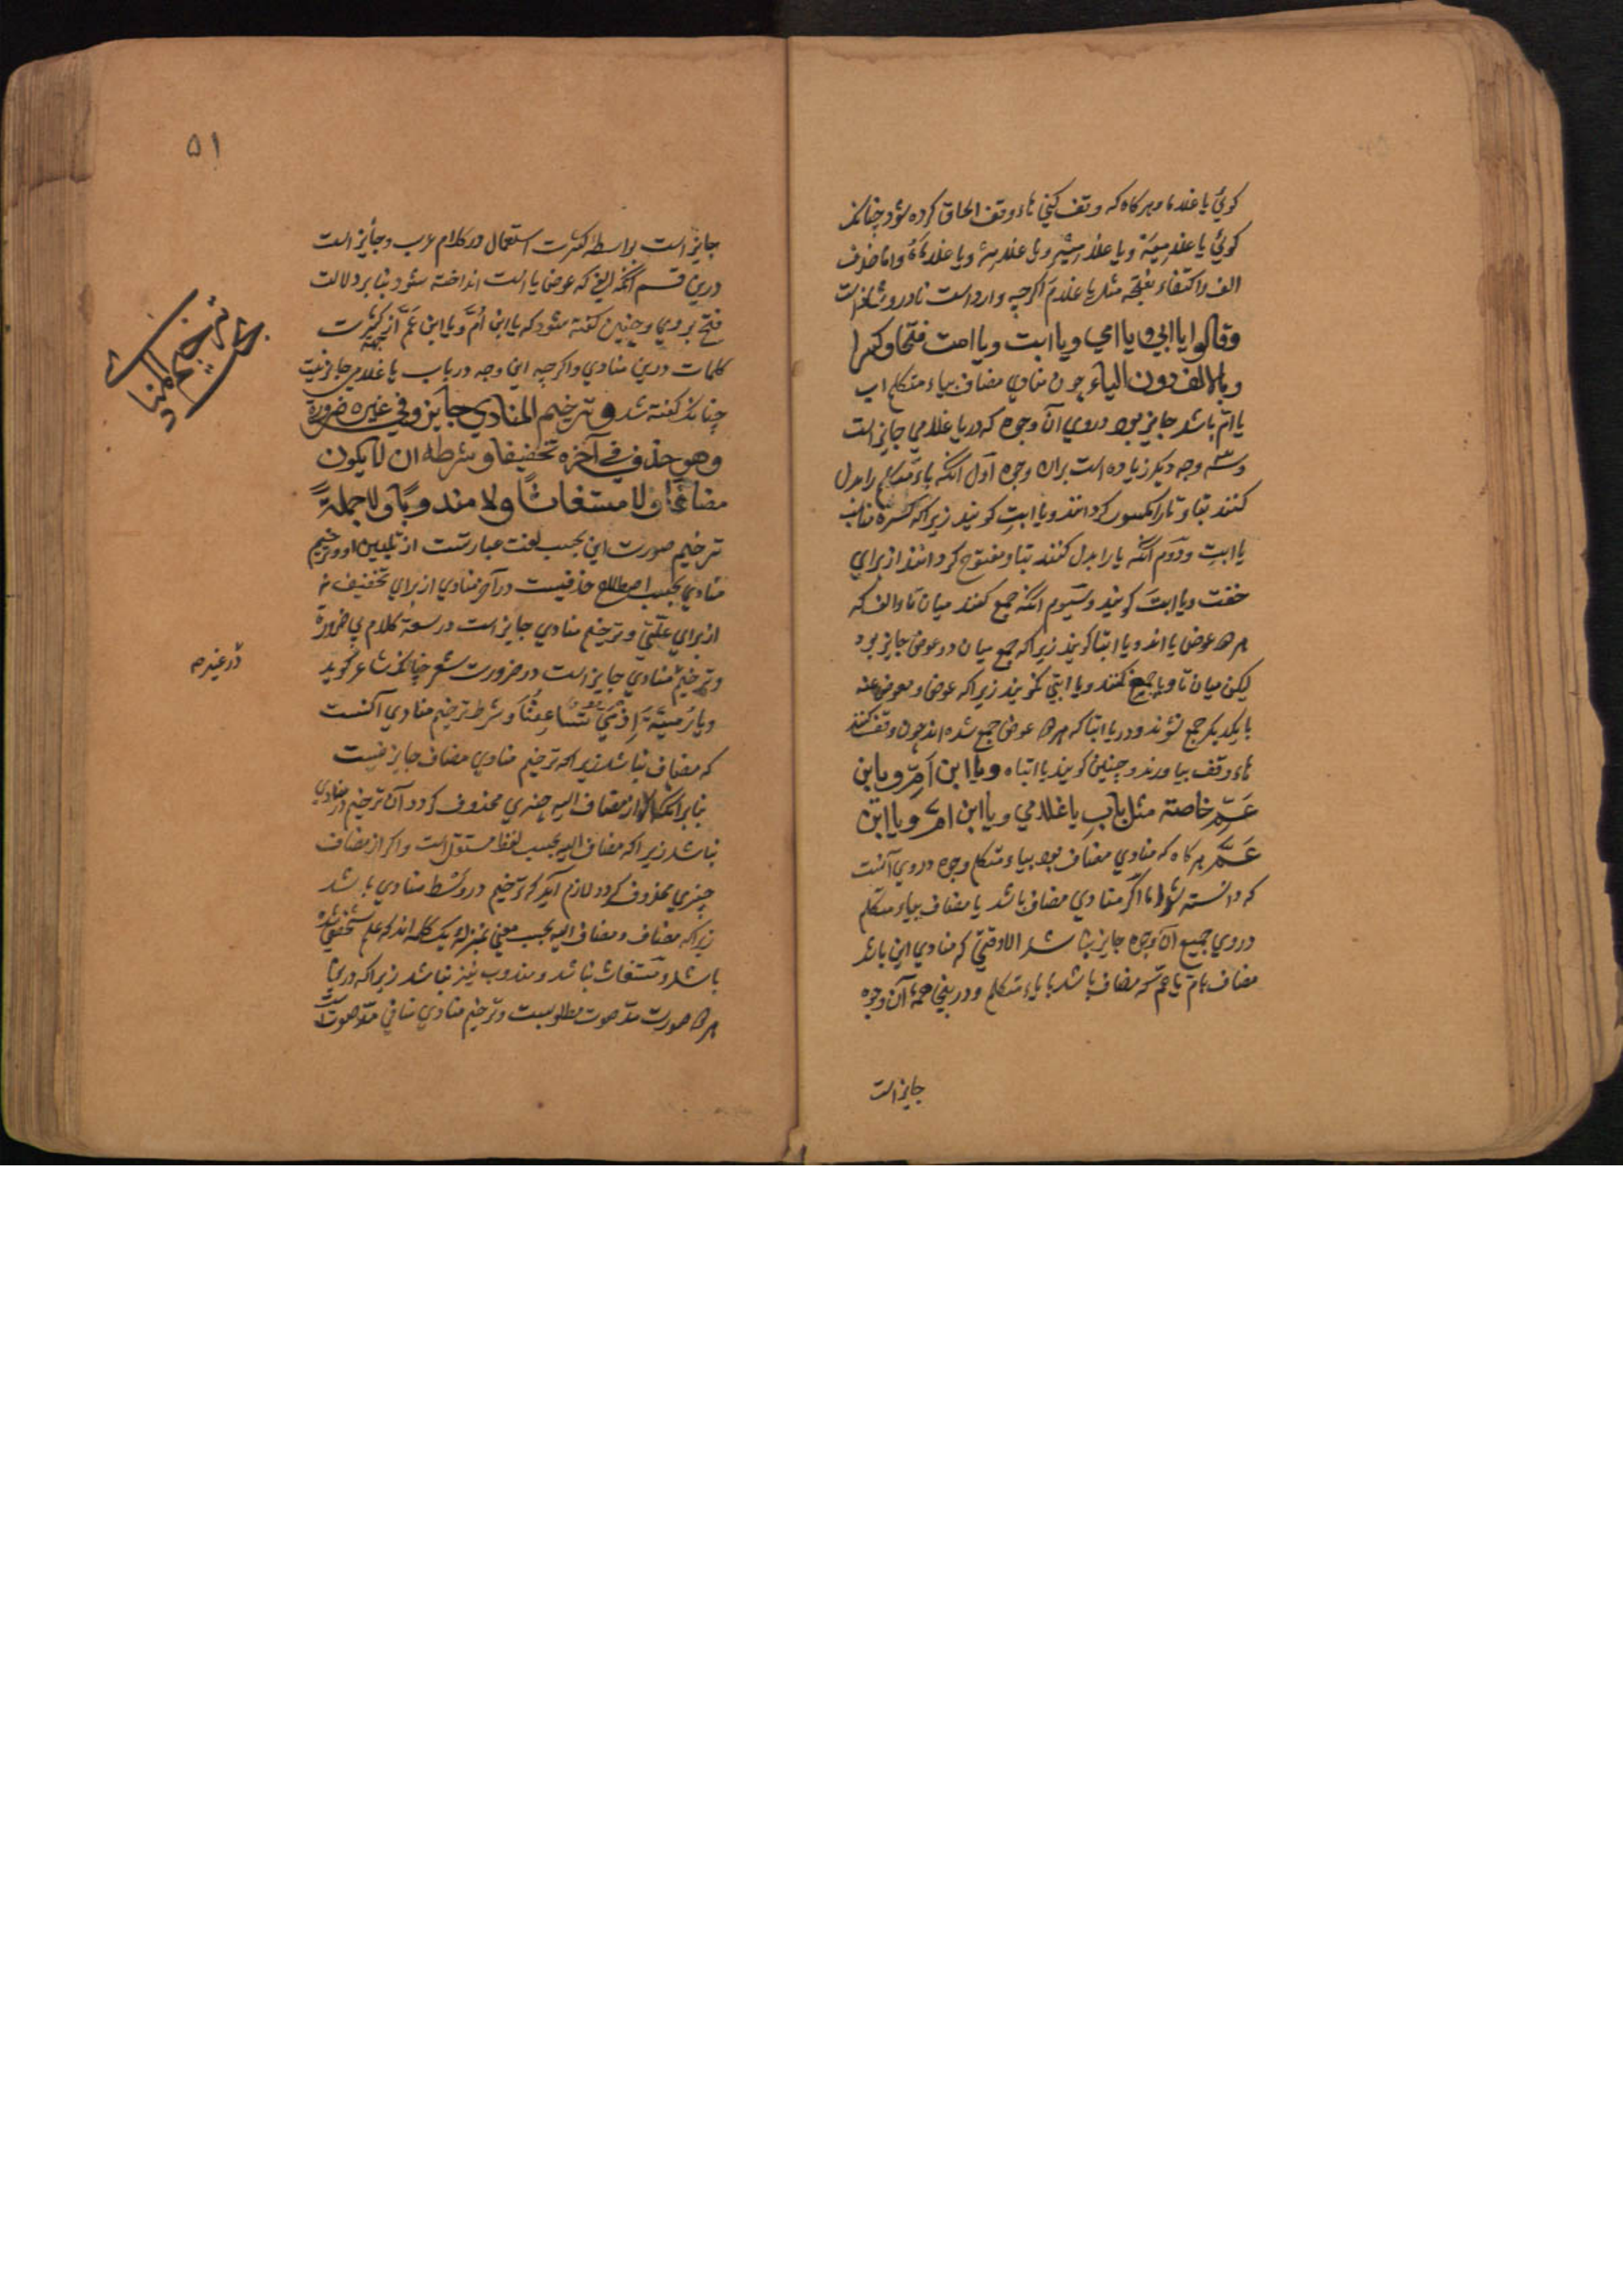 كوئي يا غلاما و هر كاه كه وقف كني هاء وقف الحاق كرده شود چنانكه
كوئي يا غلاميه ويا غلاميه ويا غلامه ويا غلاماه واما حذف
الف واكتفاء بفتحه مثل يا غلام اكرچه وارد است نادر وشاذ است
وقالوا يا ابي ويا امي ويا ابت ويا امت فتحا وكسرا
وبالالف دون الياء چون منادي مضاف بياء متكلم اب
يا ام باشد جايز بود در وي آن وجوه كه در يا غلامي جايز است
وسه وجه ديكر زياده است بران وجوه اول آنكه ياء متكلم را بدل
كنند بتا وتا را مكسور كردانند ويا ابت كويند زيرا كه كسره مناسب
يا ابت ودوم آنكه يا را بدل كنند بتا ومفتوح كردانند از براي
خفت ويا ابت كويند وسيوم آنكه جمع كنند ميان تا والف كه
هر دو عوض يا اند ويا ابتا كويند زيرا كه جمع ميان دو عوض جايز بود
ليكن ميان تا ويا جمع نكنند ويا ابتي نكويند زيرا كه عوض ومعوض عنه
با يكديكر جمع نشوند ودر يا ابتا كه هر دو عوض جمع شده اند چون وقف كنند
هاء وقف بياورند وچنين كويند يا ابتاه ويا ابن ام ويا بن
عم خاصة مثل باب يا غلامي ويا ابن ام ويا ابن
عم هر كاه كه منادي مضاف بود بياء متكلم وجوه در وي آنست
كه دانسته شد اما اكر منادي مضاف باشد يا مضاف بياء متكلم
در وي جميع آن وجوه جايز نباشد الا وقتي كه منادي ابن باشد
مضاف بام يا عم كه مضاف باشد با ياء متكلم ودريني همه آن وجوه
جايز است
۵۱
جايز است بواسطه كثرت استعمال در كلام عرب وجايز است
درين قسم آنكه الفي كه عوض يا است انداخته شود بنا بر دلالت
فتح بر وي وچنين كفته شود كه يا ابن ام ويا ابن عم از جهه كثرت
كلمات درين منادي واكرچه اين وجه در باب يا غلامي جايز نيست
چنانكه كفته شد وترخيم المنادي جايز وفي غيره ضرورة
وهو حذف في آخره تخفيفا وشرطه ان لا يكون
مضافا ولا مستغاثا ولا مندوبا ولا جملة
ترخيم صورت اين بحسب لغت عبارتست از تليين او وترخيم
منادي بحسب اصطلاح حذفيست در آخر منادي از براي تخفيف نه
از براي علتي وترخيم منادي جايز است در سعة كلام بي ضرورة
وترخيم منادي جايز است در ضرورت شعر چنانكه شاعر كويد
ديار مية اذ مي تساعفنا وشرط ترخيم منادي آنست
كه مضاف نباشد زيرا كه ترخيم منادي مضاف جايز نيست
بنا بر آنكه اكر از مضاف اليه چيزي محذوف كردد آن ترخيم در منادي
نباشد زيرا كه مضاف اليه بحسب لفظ مستقل است واكر از مضاف
چيزي محذوف كردد لازم آيد كه ترخيم در وسط منادي باشد
زيرا كه مضاف ومضاف اليه بحسب معني بمنزله يك كلمه اند كه علم شخصي شده
باشد ومستغاث نباشد ومندوب نيز نباشد زيرا كه درين
هر دو صورت مد صوت مطلوبست وترخيم منادي منافي مد صوت است
بحث ترخيم المنادي
در غيره